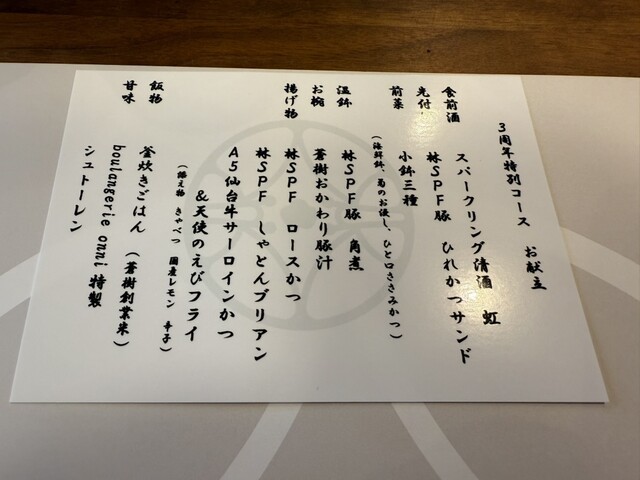 3周年特別コース　お献立
食前酒　スパークリング清酒　虹
先付　林SPF豚　ひれかつサンド
前菜　小鉢三種
（海鮮鉢、菊のお浸し、ひと口ささみかつ）
温鉢　林SPF豚　角煮
お椀　蒼樹おかわり豚汁
揚げ物　林SPF　ロースかつ
林SPF　しゃとんブリアン
A5仙台牛サーロインかつ
＆天使のえびフライ
（添え物　きゃべつ　国産レモン　辛子）
飯物　釜炊きごはん　（蒼樹創業米）
甘味　boulangerie onni 特製
シュトーレン